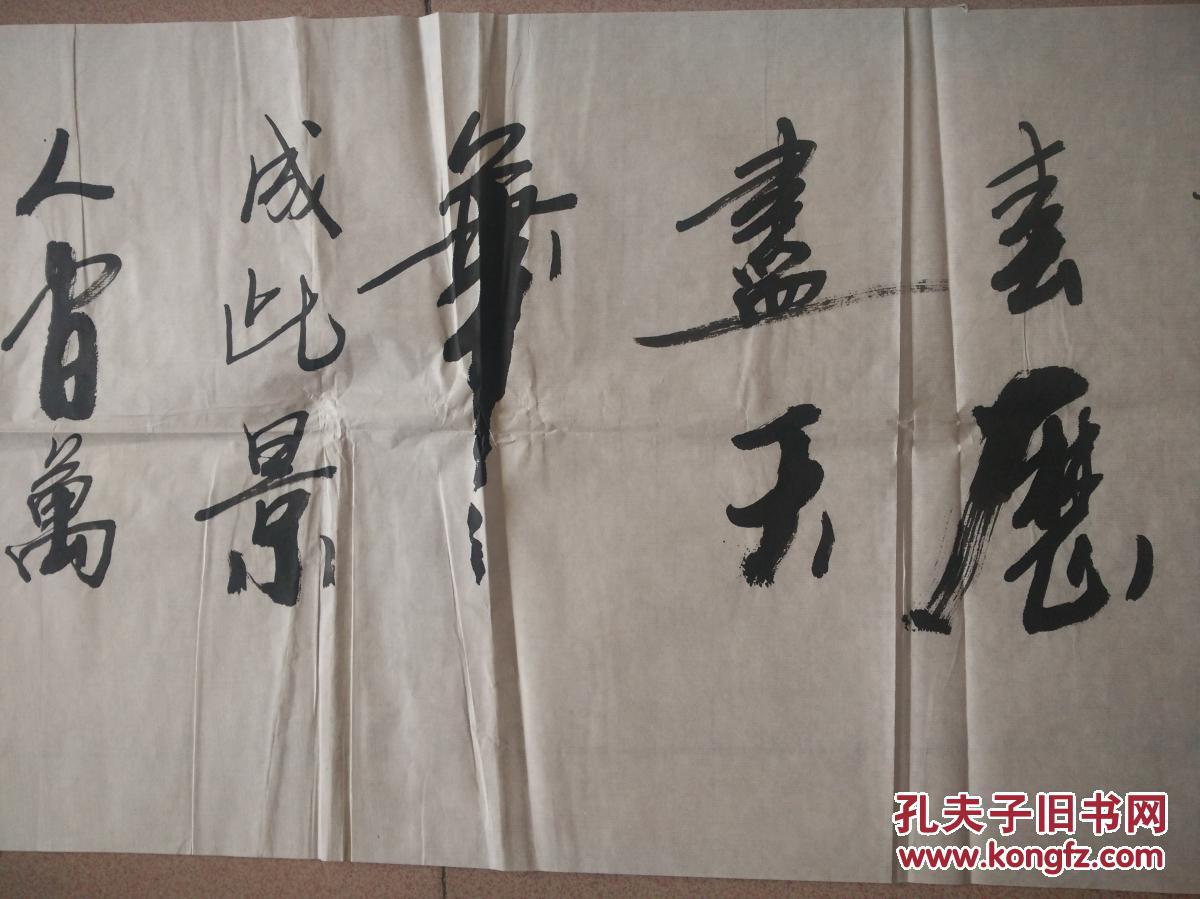 春歷
盡天
華
成此景
人間萬
孔夫子旧书网
www.kongfz.com